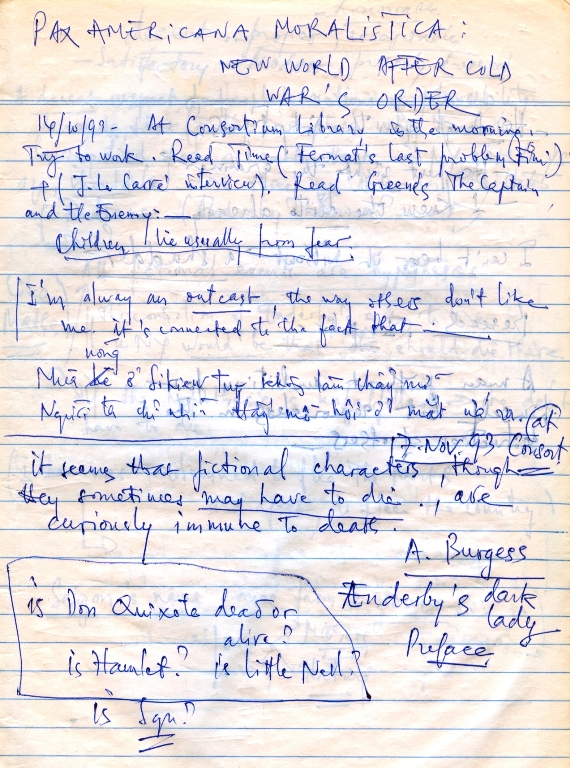 PAX AMERICANA MORALISTICA:
NEW WORLD AFTER COLD
WAR'S ORDER
At Consortium Library in the morning.
Try to work. Read Time (Fermat's last problem (Fini)
+ (J. le Carré interview). Read Greene's The Captain
and the Enemy: —
Children lie usually from fear.
I'm alway an outcast, the way others don't like
me it's connected to the fact that
nóng
Mùa hè ở không làm chảy mỡ
Người ta chỉ nhìn thấy mồ hôi ở mặt ra.
at
17. Nov. 93 Consort
it seems that fictional characters, though
they sometimes may have to die, are
curiously immune to death.
A. Burgess
Enderby's dark
lady
Preface
is Don Quixote dead or
alive?
is Hamlet? is little Nell?
is